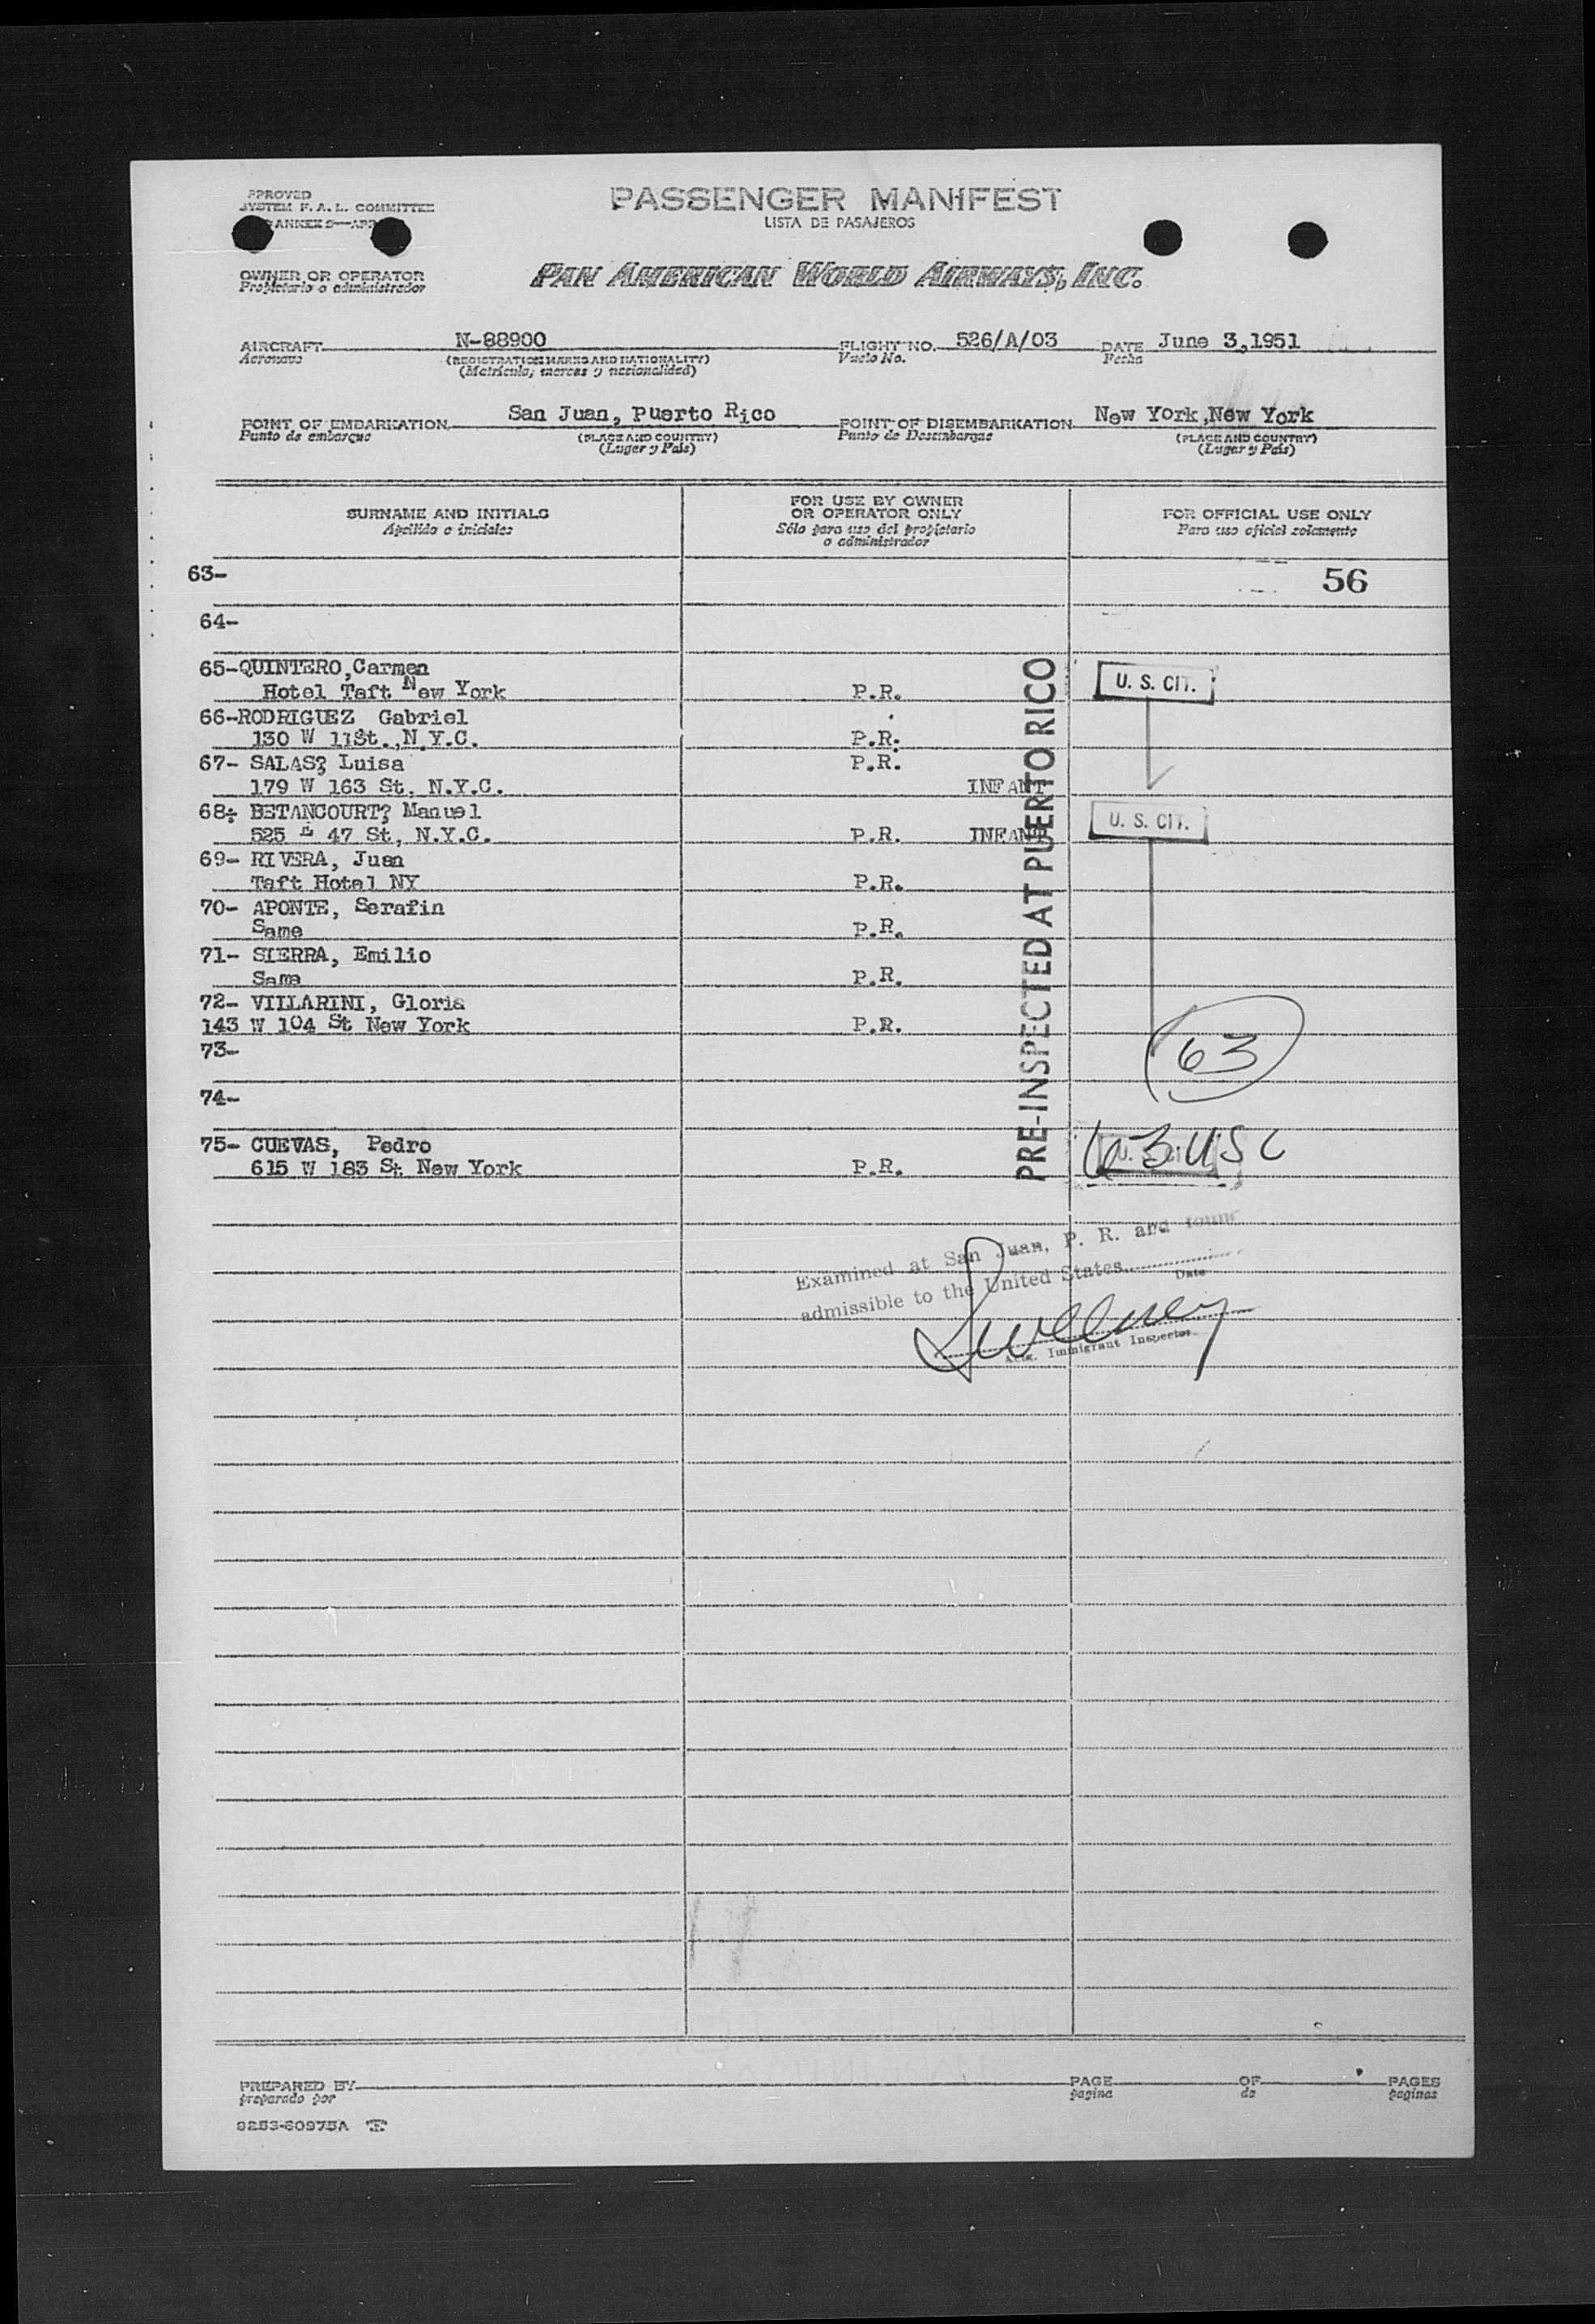 PPROVED
SYSTEM F. A. L. COMMITTEE
ANNEX 9—APP
PASSENGER MANIFEST
LISTA DE PASAJEROS
OWNER OR OPERATOR
Propietario o administrador
PAN AMERICAN WORLD AIRWAYS, INC.
AIRCRAFT N-88900 FLIGHT NO. 526/A/03 DATE June 3,1951
Aeronave (REGISTRATION MARKS AND NATIONALITY) Vuelo No. Fecha
(Matrícula, marcas y nacionalidad)
POINT OF EMBARKATION San Juan, Puerto Rico POINT OF DISEMBARKATION New York,New York
Punto de embarque (PLACE AND COUNTRY) Punto de Desembarque (PLACE AND COUNTRY)
(Lugar y País) (Lugar y País)
SURNAME AND INITIALS FOR USE BY OWNER OR OPERATOR ONLY FOR OFFICIAL USE ONLY
Apellido e iniciales Sólo para uso del propietario o administrador Para uso oficial solamente
63- 56
64-
65-QUINTERO,Carmen
Hotel Taft New York P.R. U. S. CIT.
66-RODRIGUEZ Gabriel
130 W 11St.,N.Y.C. P.R.
67- SALAS? Luisa P.R.
179 W 163 St, N.Y.C. INFANT
68- BETANCOURT? Manuel U. S. CIT.
525 E 47 St, N.Y.C. P.R. INFANT
69- RIVERA, Juan
Taft Hotel NY P.R.
70- APONTE, Serafin
Same P.R.
71- SIERRA, Emilio
Same P.R.
72- VILLARINI, Gloria
143 W 104 St New York P.R.
73- 63
74-
75- CUEVAS, Pedro 63 USC
615 W 183 St. New York P.R.
PRE-INSPECTED AT PUERTO RICO
Examined at San Juan, P. R. and found
admissible to the United States
Date
Sweeney
Actg. Immigrant Inspector
PREPARED BY PAGE OF PAGES
preparado por pagina de paginas
9253-60975A